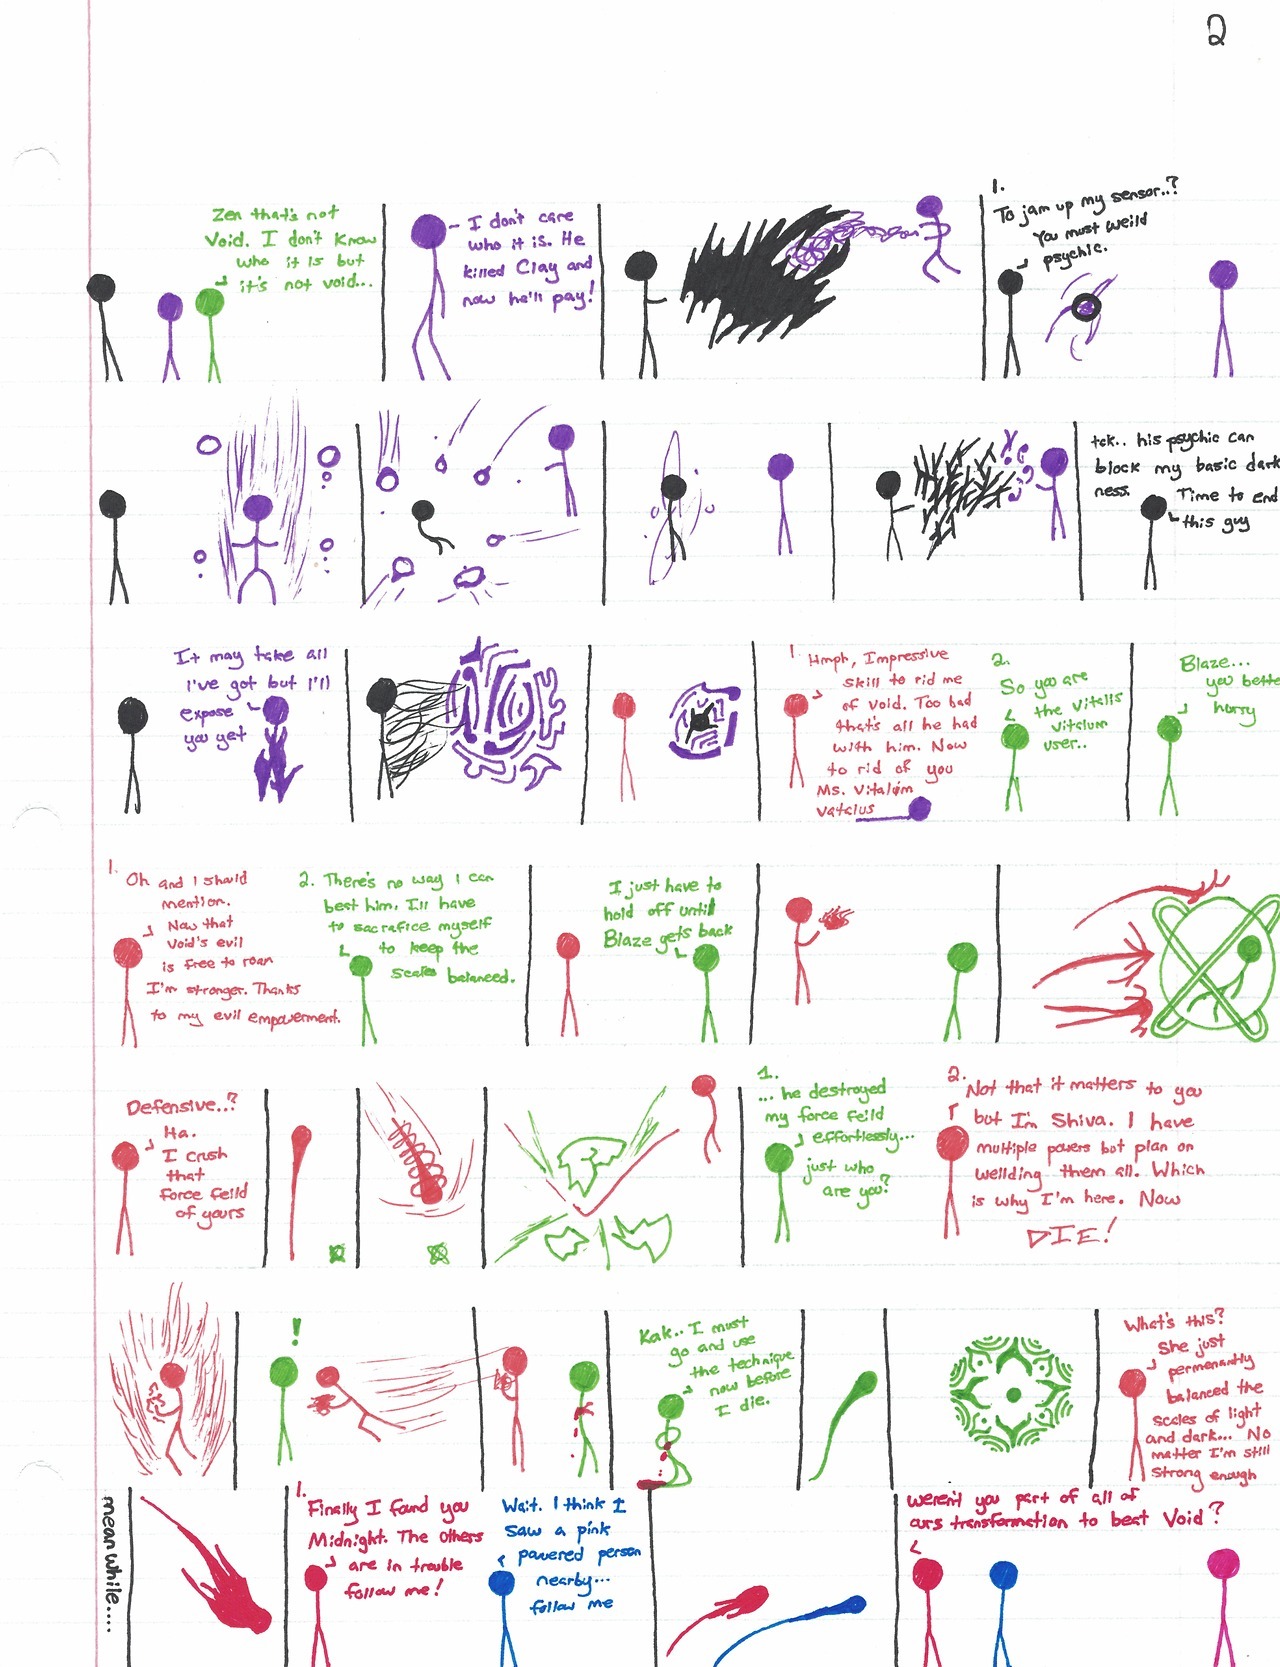 2
Zen that's not
Void. I don't know
who it is but
it's not void...
I don't care
who it is. He
killed Clay and
now he'll pay!
1.
To jam up my sensor..?
You must weild
psychic.
tck.. his psychic can
block my basic dark
ness.
Time to end
this guy
It may take all
I've got but I'll
expose
you yet
1.
Hmph, Impressive
skill to rid me
of void. Too bad
that's all he had
with him. Now
to rid of you
Ms. Vitalum
Vatalus
2.
So you are
the Vitalis
Vitalum
user..
Blaze...
you better
hurry
1.
Oh and I should
mention.
Now that
Void's evil
is free to roam
I'm stronger. Thanks
to my evil empowerment.
2. There's no way I can
best him. I'll have
to sacrafice myself
to keep the
scales balanced.
I just have to
hold off until
Blaze gets back
Defensive..?
Ha.
I crush
that
force feild
of yours
1.
... he destroyed
my force feild
effortlessly...
just who
are you?
2.
Not that it matters to you
but I'm Shiva. I have
multiple powers but plan on
weilding them all. Which
is why I'm here. Now
DIE!
!
Kak.. I must
go and use
the technique
now before
I die.
What's this?
She just
permenantly
balanced the
scales of light
and dark... No
matter I'm still
strong enough
meanwhile....
1.
Finally I found you
Midnight. The others
are in trouble
follow me!
Wait. I think I
saw a pink
powered person
nearby...
follow me
weren't you part of all of
ours transformation to beat Void?